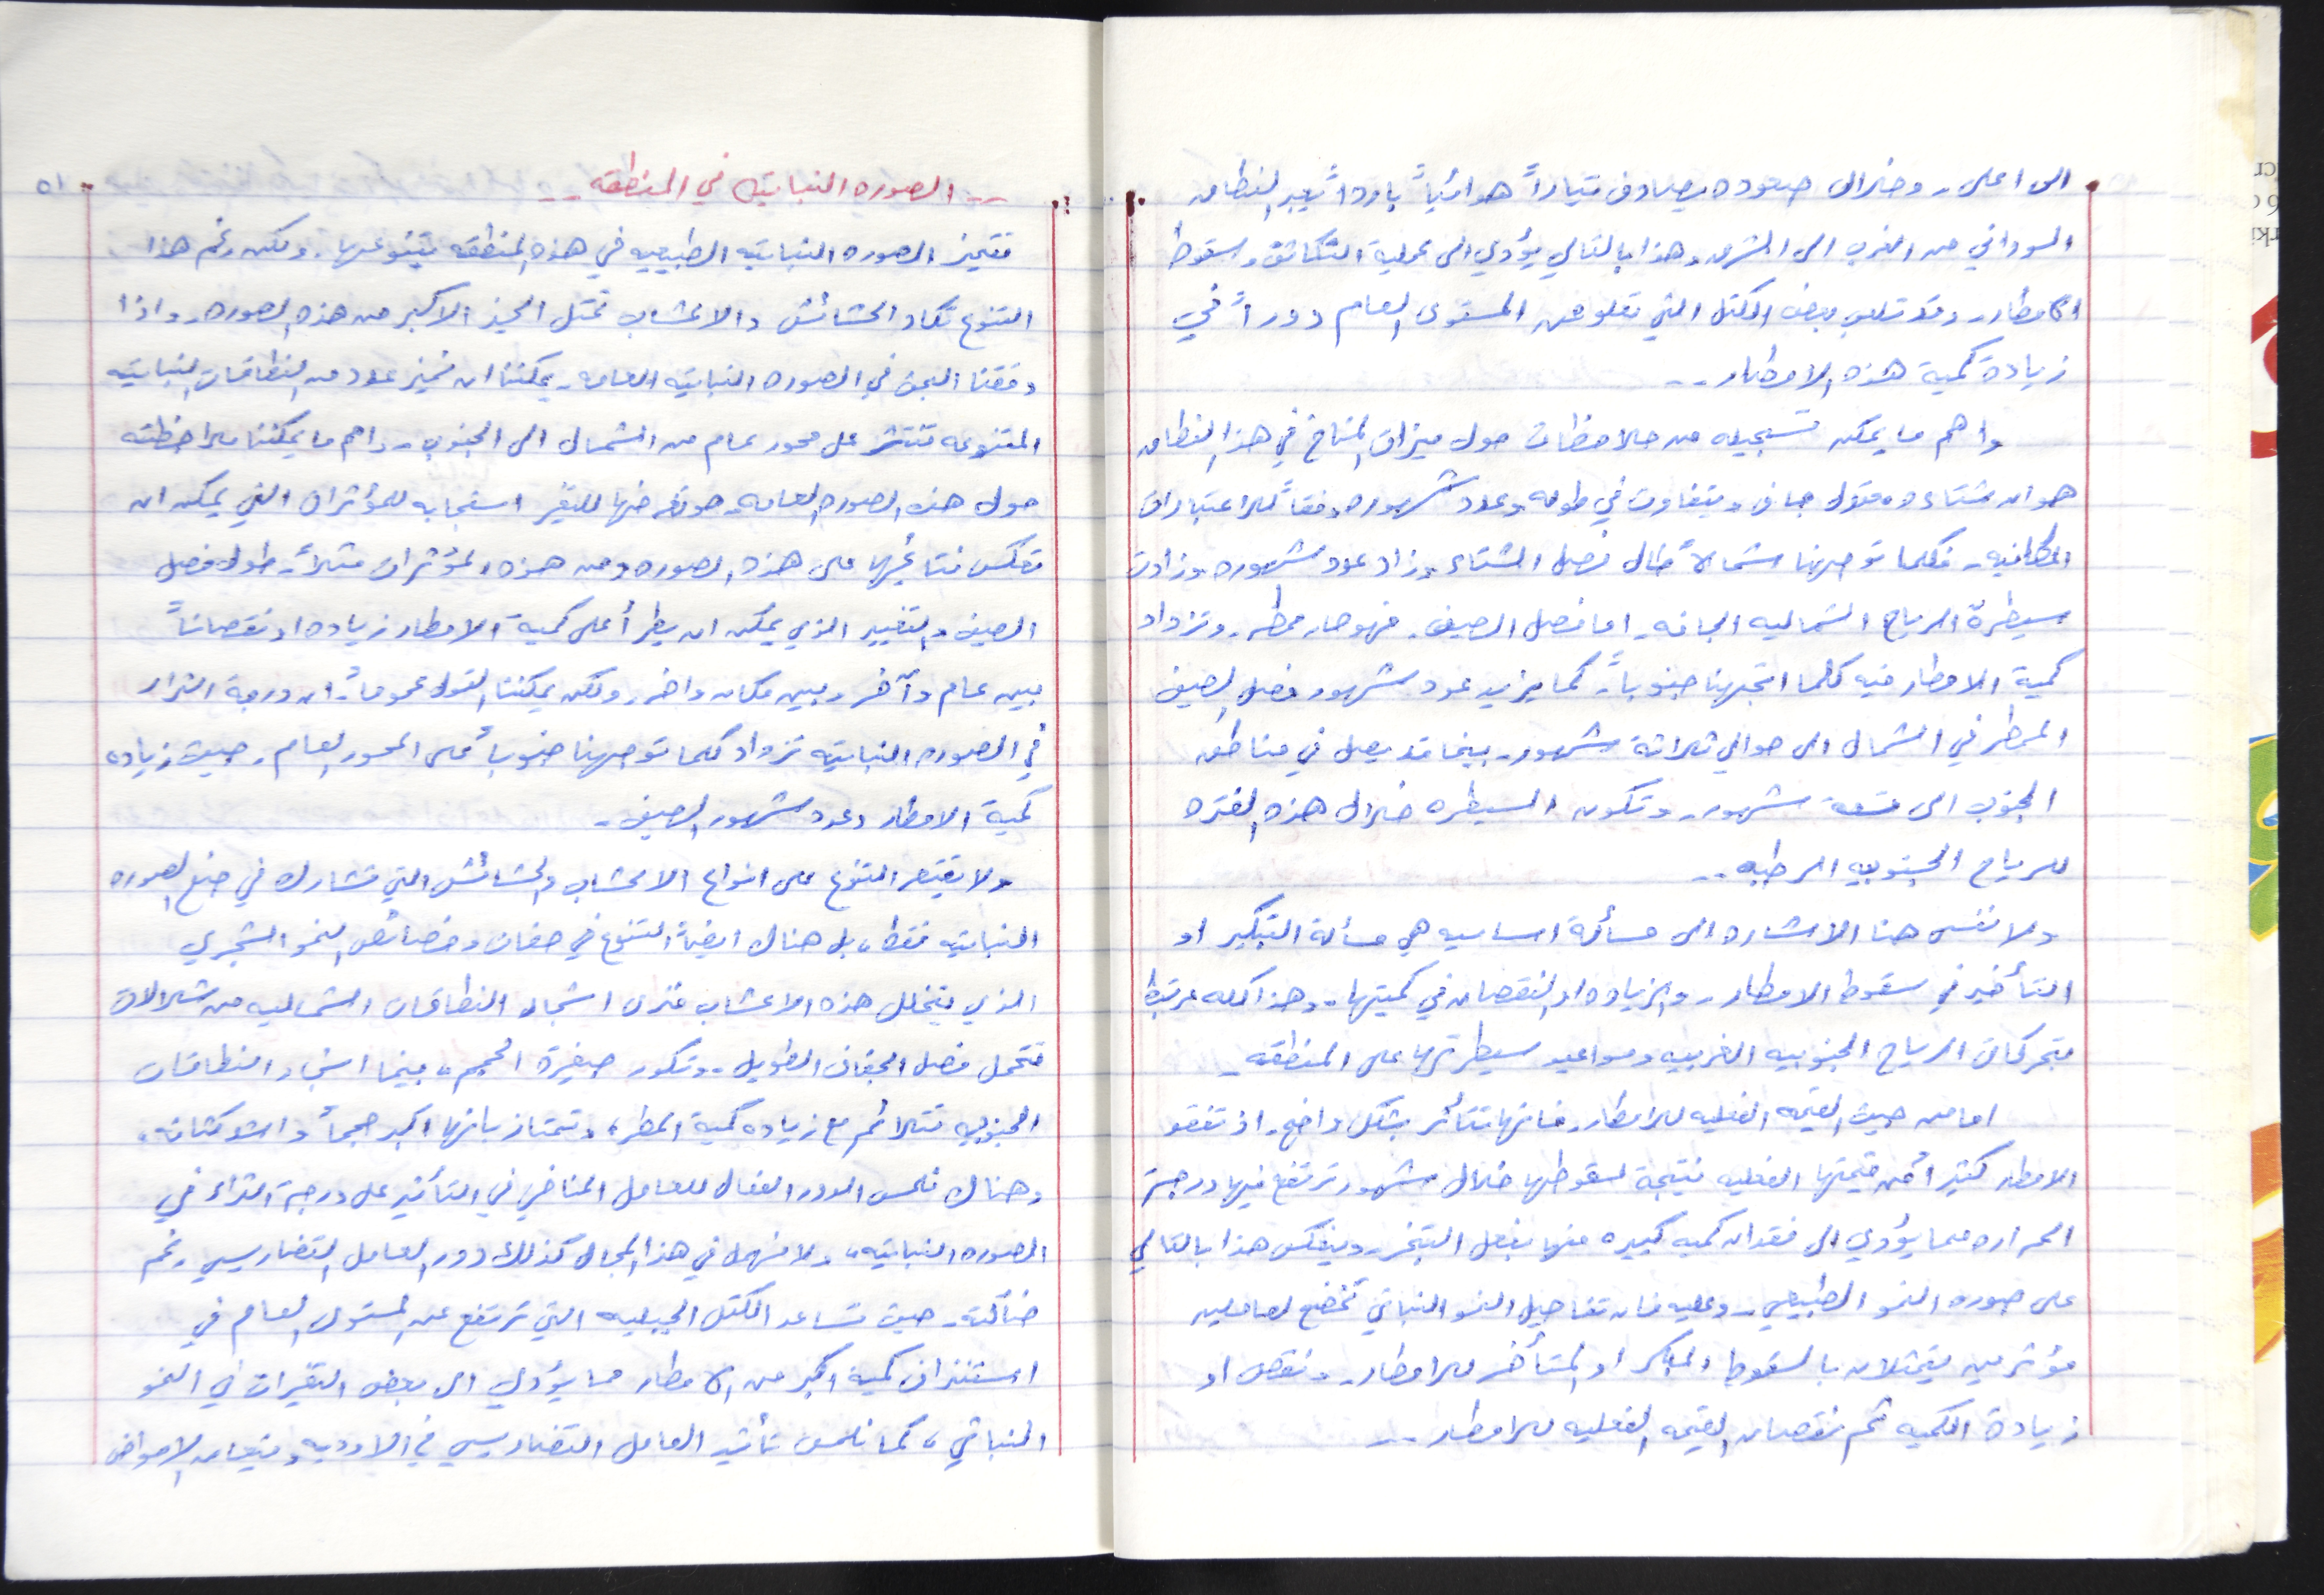 الى اعلى - وخلال صعوده يصادف تياراً هوائياً بارداً يعبر النطاق
السوداني من الغرب الى الشرق وهذا بالتالي يؤدي الى عملية التكاثف وسقوط
الامطار - وقد تلعب بعض الكتل التي تعلو عن المستوى العام دوراً في
زيادة كمية هذه الامطار --
واهم ما يمكن تسجيله من ملاحظات حول ميزات المناخ في هذا النطاق
هو ان شتاءه جاف ويتفاوت في طوله وعدد شهوره وفقاً للاعتبارات
المكانيه - فكلما توجهنا شمالاً طال فصل الشتاء وزاد عدد شهوره وزادت
سيطرة الرياح الشماليه الجافه - اما فصل الصيف - فهو حار ممطر - وتزداد
كمية الامطار فيه كلما اتجهنا جنوباً - كما يزيد عدد شهور فصل الصيف
الممطر في الشمال الى حوالي ثلاثة شهور - بينما قد يصل في مناطق
الجنوب الى تسعة شهور - وتكون السيطره خلال هذه الفتره
للرياح الجنوبيه الرطبه --
ولا ننسى هنا الاشاره الى مسألة اساسيه هي مسألة التبكير او
التأخير في سقوط الامطار - والزياده او النقصان في كميتها - وهذا كله مرتبط
بتحركات الرياح الجنوبيه الغربيه ومواعيد سيطرتها على المنطقه -
اما من حيث القيمه الفعليه للامطار - فانها تتأثر بشكل واضح - اذ تفقد
الامطار كثيراً من قيمتها الفعليه نتيجة لسقوطها خلال شهور ترتفع فيها درجة
الحراره مما يؤدي الى فقدان كميه كبيره منها بفعل التبخر - وينعكس هذا بالتالي
على صوره النمو الطبيعي - وعليه فان تفاصيل النمو النباتي تخضع لعاملين
مؤثرين يتمثلان بالسقوط المبكر او المتأخر للامطار - ونقص او
زيادة الكميه ثم نقصان القيمه الفعليه للامطار --
٥١
-- الصوره النباتيه في المنطقه --
تتميز الصوره النباتيه الطبيعيه في هذه المنطقه بتنوعها - ولكن رغم هذا
التنوع تكاد الحشائش والاعشاب تحتل الحيز الاكبر من هذه الصوره - واذا
دققنا البحث في الصوره النباتيه العامه - يمكننا ان نميز عدد من النطاقات النباتيه
المتنوعه تنتشر على محور عام من الشمال الى الجنوب - واهم ما يمكننا ملاحظته
حول هذه الصوره العامه - هو تعرضها للتغير استجابه للمؤثرات التي يمكن ان
تعكس نتائجها على هذه الصوره ومن هذه المؤثرات مثلاً - طول فصل
الصيف والتغيير الذي يمكن ان يطرأ على كمية الامطار زياده او نقصاناً
بين عام وآخر وبين مكان واخر - ولكن يمكننا القول عموماً - ان درجة الثراء
في الصوره النباتيه تزداد كلما توجهنا جنوباً على المحور العام - حيث زياده
كمية الامطار وعدد شهور الصيف -
ولا يقتصر التنوع على انواع الاعشاب والحشائش التي تشارك في صنع الصوره
النباتيه فقط ، بل هناك ايضاً التنوع في صفات وخصائص النمو الشجري
الذي يتخلل هذه الاعشاب فترى اشجار النطاقات الشماليه من شلالات
تتحمل فصل الجفاف الطويل - وتكون صغيرة الحجم ، بينما اشجار النطاقات
الجنوبيه تتلائم مع زياده كمية المطر ، وتمتاز بانها اكبر حجماً واشد كثافه ،
وهناك نلمس الدور الفعال للعامل المناخي في التأثير على درجة الثراء في
الصوره النباتيه ، ولا نهمل في هذا المجال كذلك دور العامل التضاريسي رغم
ضآلته - حيث تساعد الكتل الجبليه التي ترتفع عن المستوى العام في
استنزاف كمية اكبر من الامطار مما يؤدي الى بعض التغيرات في النمو
النباتي ، كما نلمس تأثير العامل التضاريسي في الاوديه وقيعان الاحواض